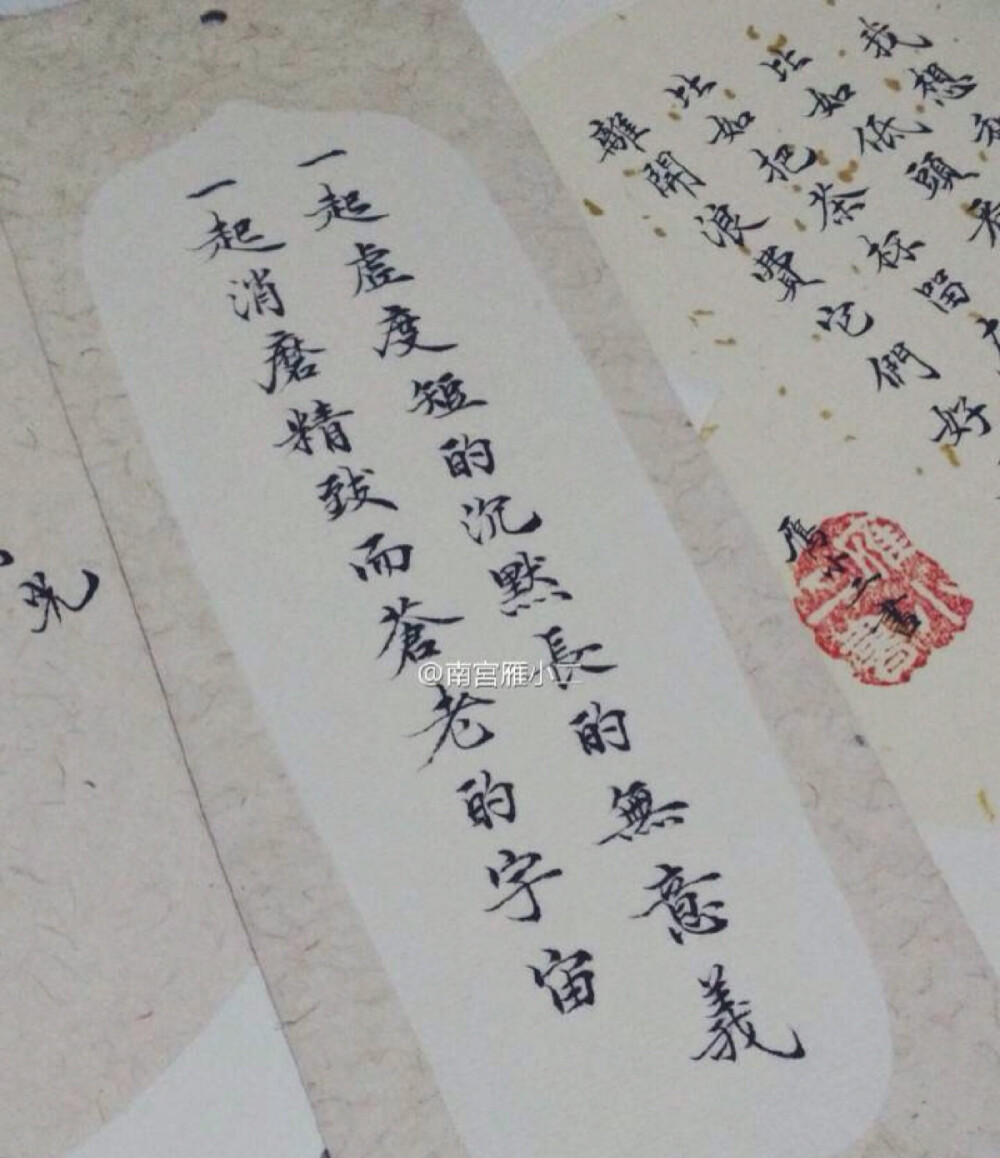 我想和
比如低頭看
比如把茶杯留在
離開浪費它們好
雁小二書
一起虛度短的沉默長的無意義
一起消磨精致而蒼老的宇宙
@南宫雁小二